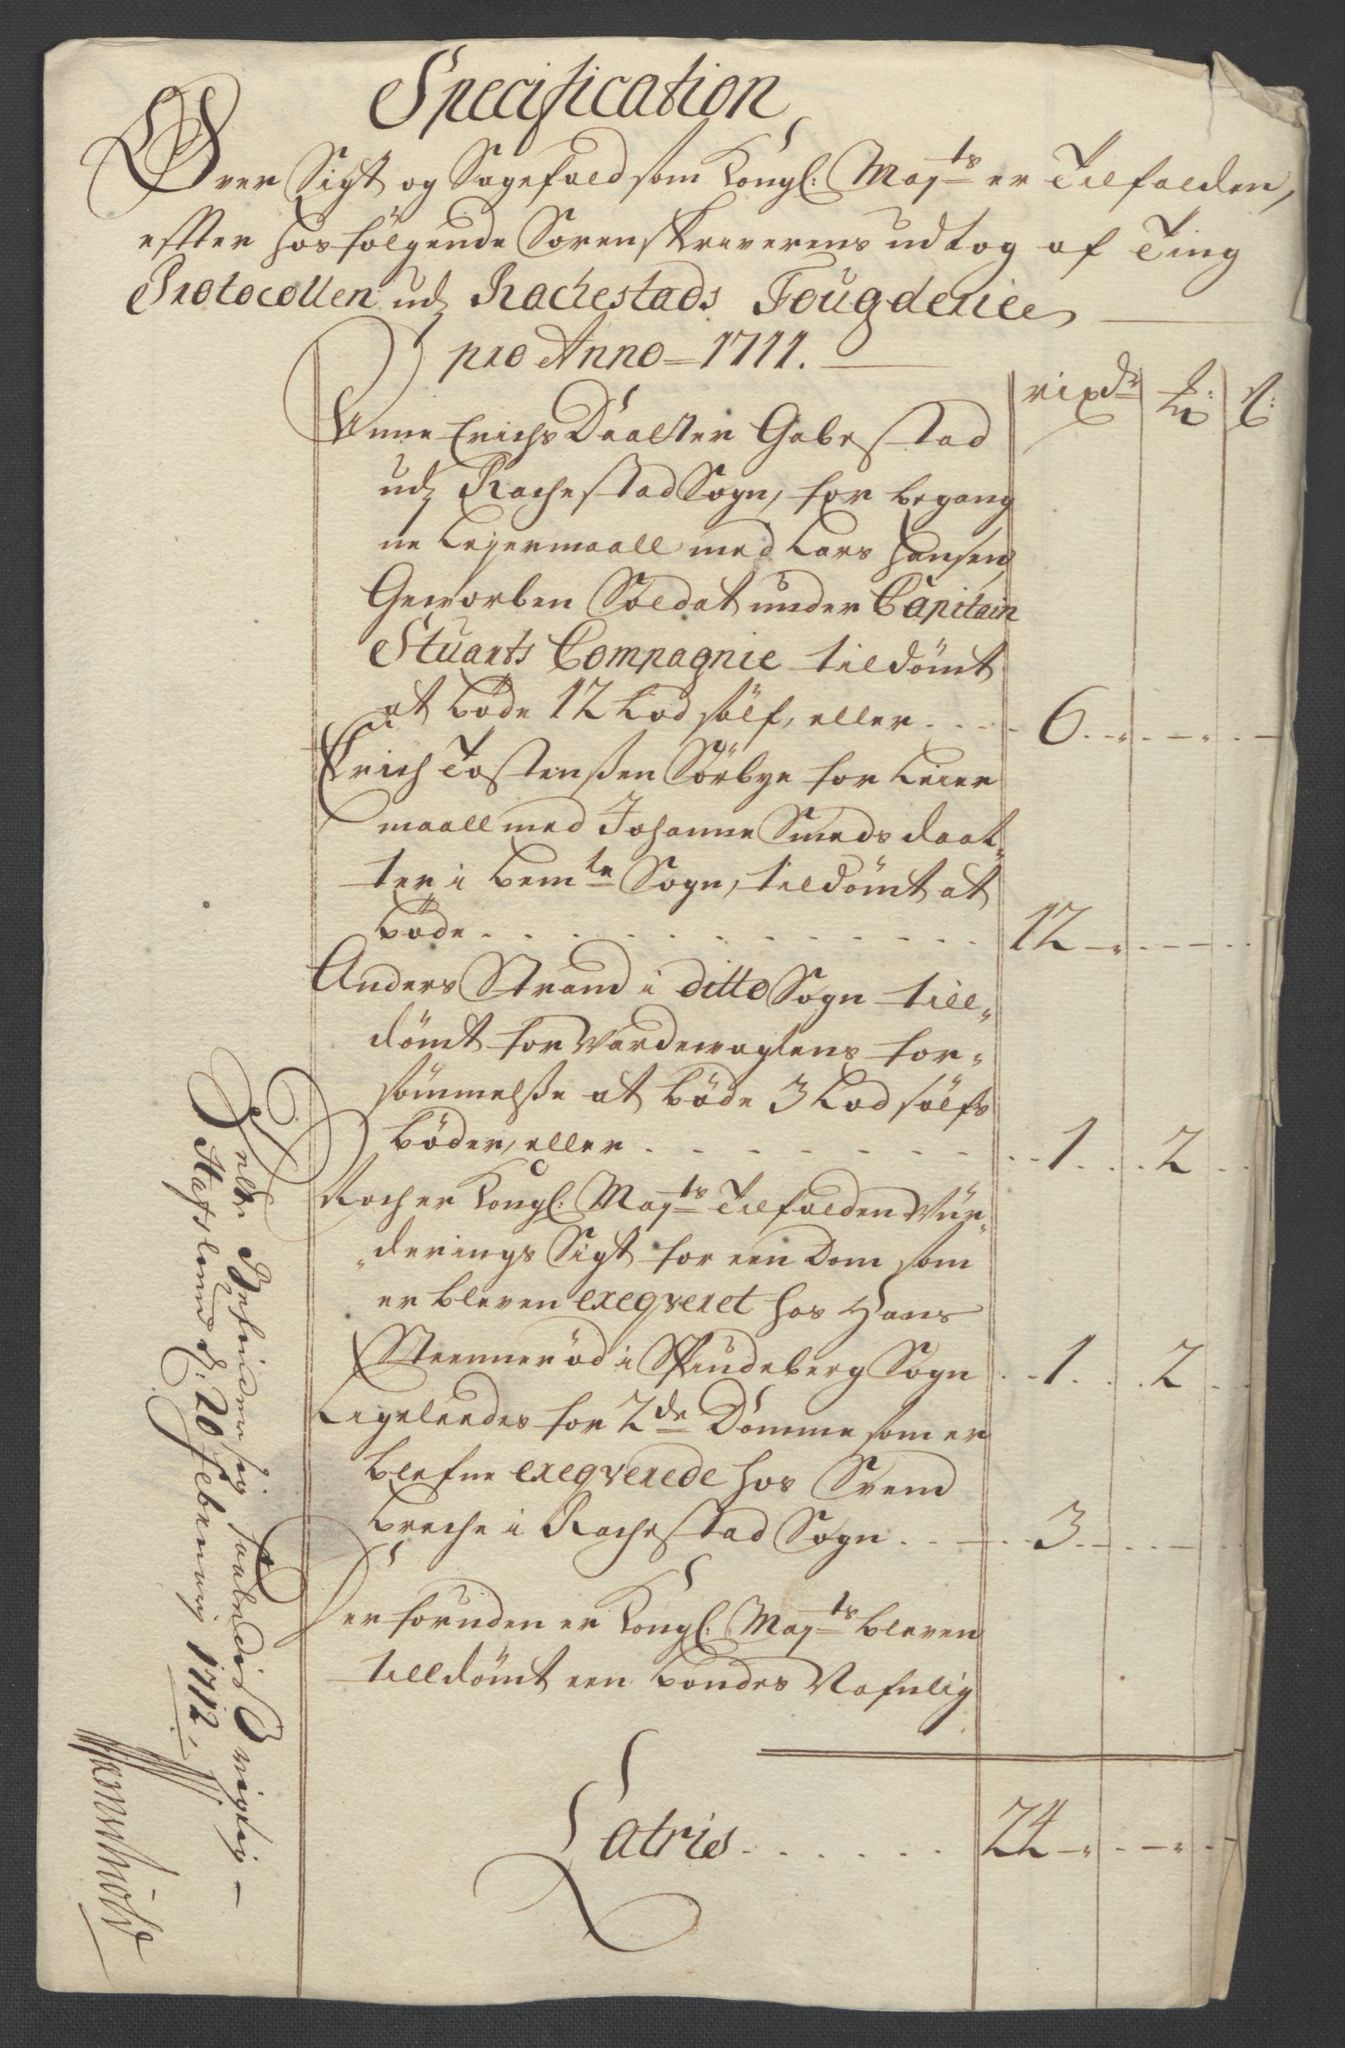 Specification
Over Sigt og Sagefald som Kongl: Mayts er Tilfalden,
effter hosfölgende Sorenskriverens udtog af Ting
Protocollen udj Rachestads Fougderie
pro Anno - 1711.
rixdr ℔: ß:
Anne Erichs Daatter Gabestad
udj Rachestad Sogn, for begang
ne Lejermaall med Lars Hansen,
Geworben Soldat under Capitain
Stuarts Compagnie tildömt
at böde 12 Lod sölf, eller . . . . 6 . - „ - - „ - . -
Erich Tostenßen Sörbye for Leier
maall med Johanne Smeds daat„
ter i bemte Sogn, tildömt at
böde . . . . . . . . . . . . 12 - „ - . - - . .
Anders Strand i ditto Sogn till„
dömt for Vardevagtens for„
sömmelße at böde 3 Lod sölfs
böder, eller . . . . . . . . . . 1 . . . 2 . .
Noch er Kongl: Mayts Tilfalden Vur„
„derings Sigt for een Dom som
er bleven exeqveret hos Hans
Steeneröd i Skindeberg Sogn . . . 1 . . . 2 . . .
Ligeleedes for 2de Domme som er
blefne exeqverede hos Svend
Breche i Rachestad Sogn . . - . . 3 . - . . - . .
Derforuden er Kongl: Mayts bleven
tilldömt een bondes Nafnlig
Latris . . . . . . 24 - „ - . - „ - .
Dette Befindes sig saaledis Rigtig -
Hafslund d: 20 Februarij 1712,